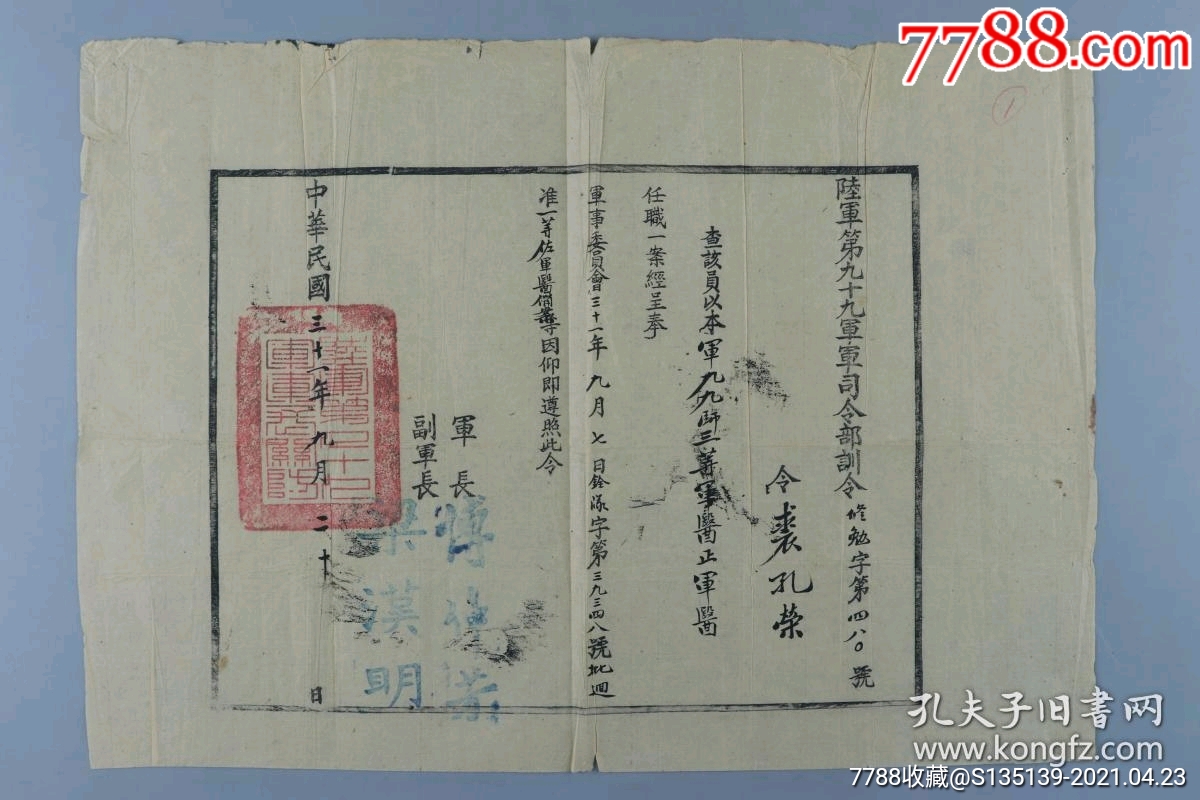 7788.com
1
陸軍第九十九軍軍司令部訓令修勉字第四八〇號
令裘孔榮
查該員以本軍九九師三等軍醫正軍醫
任職一案經呈奉
軍事委員會三十一年九月七日銓涿字第三九三四八號批迴
准一等佐軍醫備案等因仰即遵照此令
軍長
副軍長 梁漢明
中華民國三十一年九月二十日
孔夫子旧书网
www.kongfz.com
7788收藏@S135139-2021.04.23